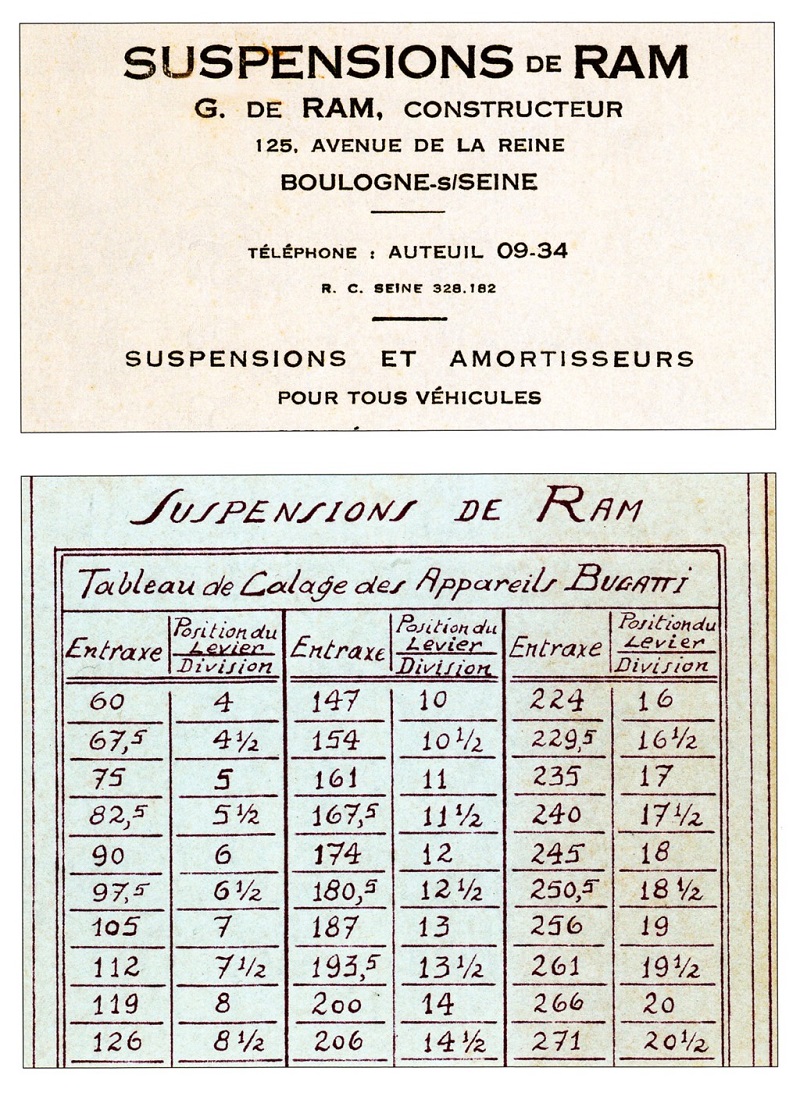 SUSPENSIONS DE RAM
G. DE RAM, CONSTRUCTEUR
125, AVENUE DE LA REINE
BOULOGNE-s/SEINE
TÉLÉPHONE : AUTEUIL 09-34
R. C. SEINE 328.182
SUSPENSIONS ET AMORTISSEURS
POUR TOUS VÉHICULES
SUSPENSIONS DE RAM
Tableau de Calage des Appareils BUGATTI
Entraxe Position du Levier Division Entraxe Position du Levier Division Entraxe Position du Levier Division
60 4 147 10 224 16
67,5 4 1/2 154 10 1/2 229,5 16 1/2
75 5 161 11 235 17
82,5 5 1/2 167,5 11 1/2 240 17 1/2
90 6 174 12 245 18
97,5 6 1/2 180,5 12 1/2 250,5 18 1/2
105 7 187 13 256 19
112 7 1/2 193,5 13 1/2 261 19 1/2
119 8 200 14 266 20
126 8 1/2 206 14 1/2 271 20 1/2